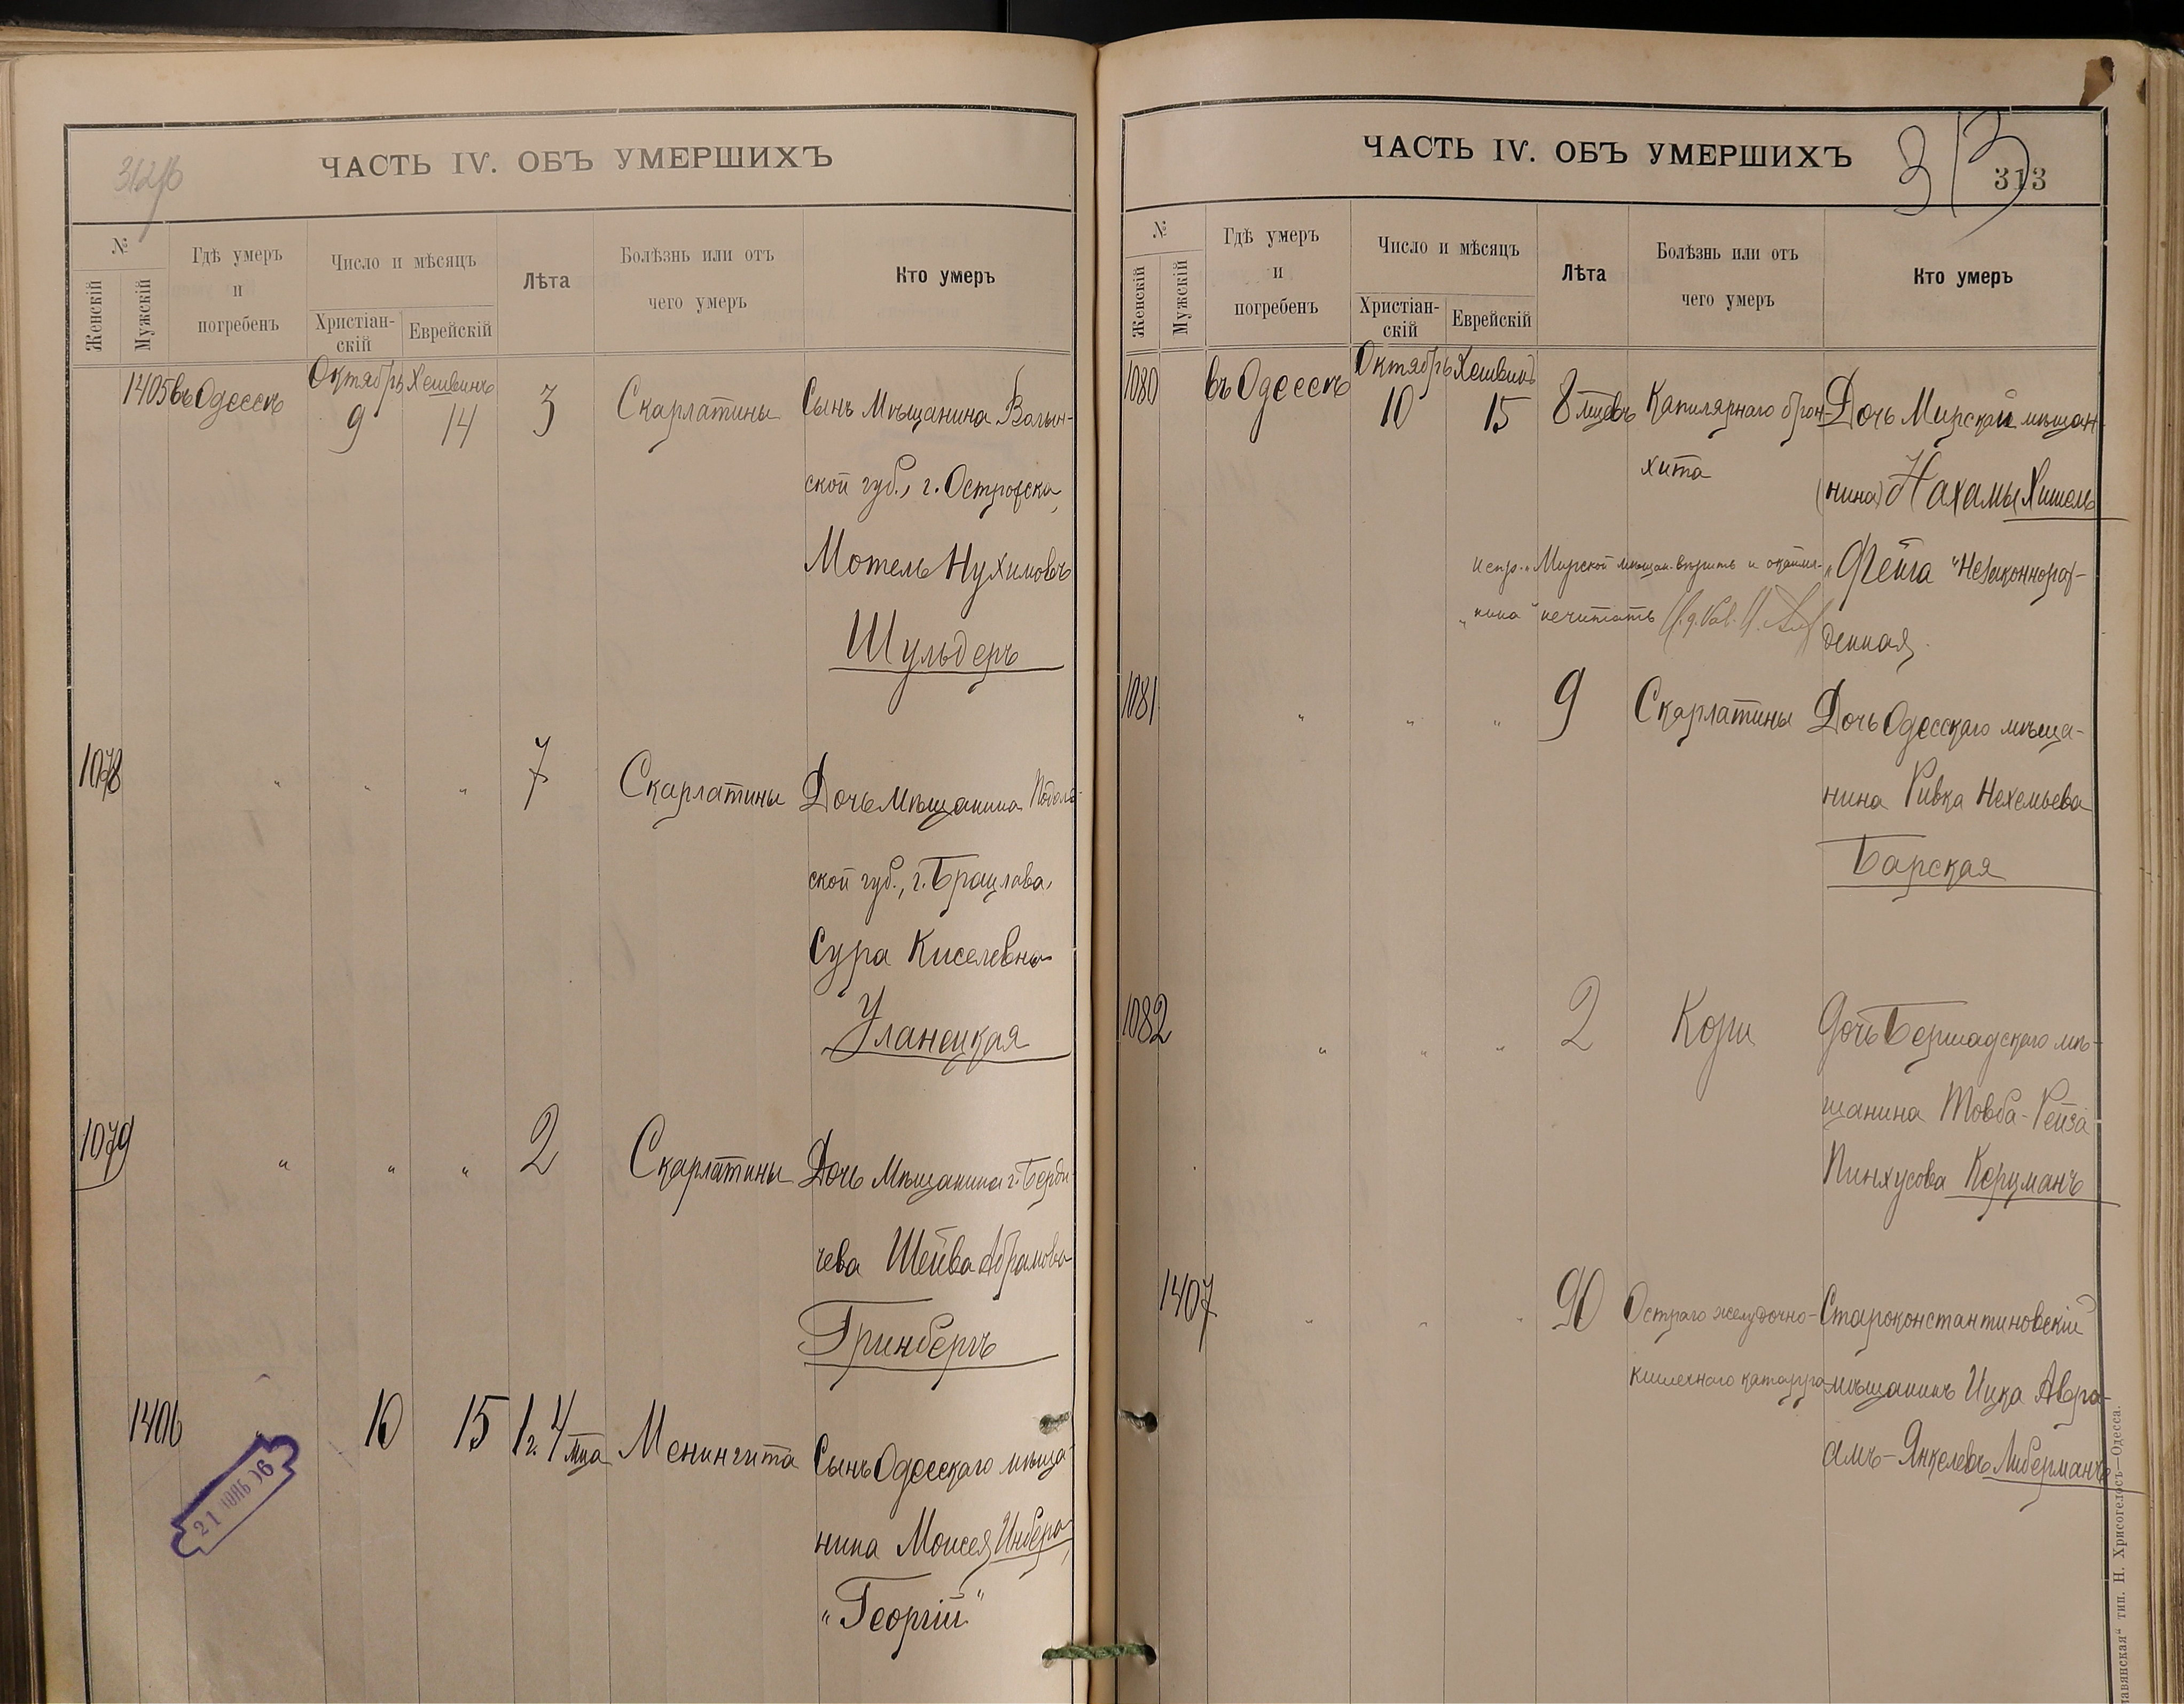 312/б
ЧАСТЬ IV. ОБЪ УМЕРШИХЪ
№
Женскій
Мужскій
Гдѣ умеръ
и
погребенъ
Число и мѣсяцъ
Христіан-
скій
Еврейскій
Лѣта
Болѣзнь или отъ
чего умеръ
Кто умеръ
1405 въ Одессѣ Октябрь 9 Хешвинъ 14 3 Скарлатины Сынъ Мѣщанина Волын-
ской губ., г. Острожска,
Мотель Нухимовъ
Шульдеръ
1078 " " " 7 Скарлатины Дочь Мѣщанина Подоль-
ской губ., г. Брацлава,
Сура Киселевна
Уланецкая
1079 " " " 2 Скарлатины Дочь Мѣщанина г. Берди-
чева Шейва Абрамова
Гринбергъ
1406 " 10 15 1 г. 4 мца Менингита Сынъ Одесскаго мѣща-
нина Моисея Инбера,
"Георгій"
21 НОЯБ 06
ЧАСТЬ IV. ОБЪ УМЕРШИХЪ
313
313
№
Женскій
Мужскій
Гдѣ умеръ
и
погребенъ
Число и мѣсяцъ
Христіан-
скій
Еврейскій
Лѣта
Болѣзнь или отъ
чего умеръ
Кто умеръ
1080 въ Одессѣ Октябрь 10 Хешвинъ 15 8 мцевъ Капилярнаго брон- Дочь Мирской мѣщан
хита (нина) Нахамы Химель
испр. "Мирской мѣщан. вѣрить и "Фейга" Незаконнорож-
"нина" нечитать денная
1081 " " " 9 Скарлатины Дочь Одесскаго мѣща-
нина Ривка Нехемьева
Барская
1082 " " " 2 Кори Дочь Бершадскаго мѣ-
щанина Товба-Рейза
Пинхусова Керцманъ
1407 " " " 90 Остраго желудочно- Староконстантиновскій
кишечнаго катарра мѣщанинъ Ицка Авра-
амъ-Янкелевъ Либерманъ
лавянская" тип. Н. Хрисогелосъ—Одесса.